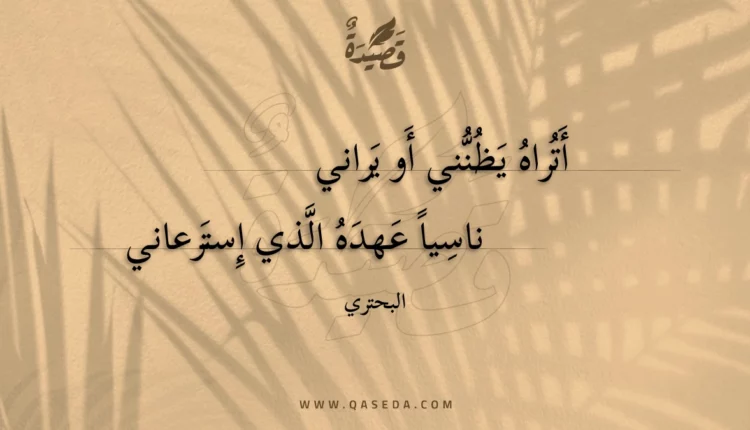 قَصِيدَةٌ
أَتُراهُ يَظُنُّني أَو يَراني
ناسِياً عَهدَهُ الَّذي إِستَرعاني
البحتري
WWW.QASEDA.COM